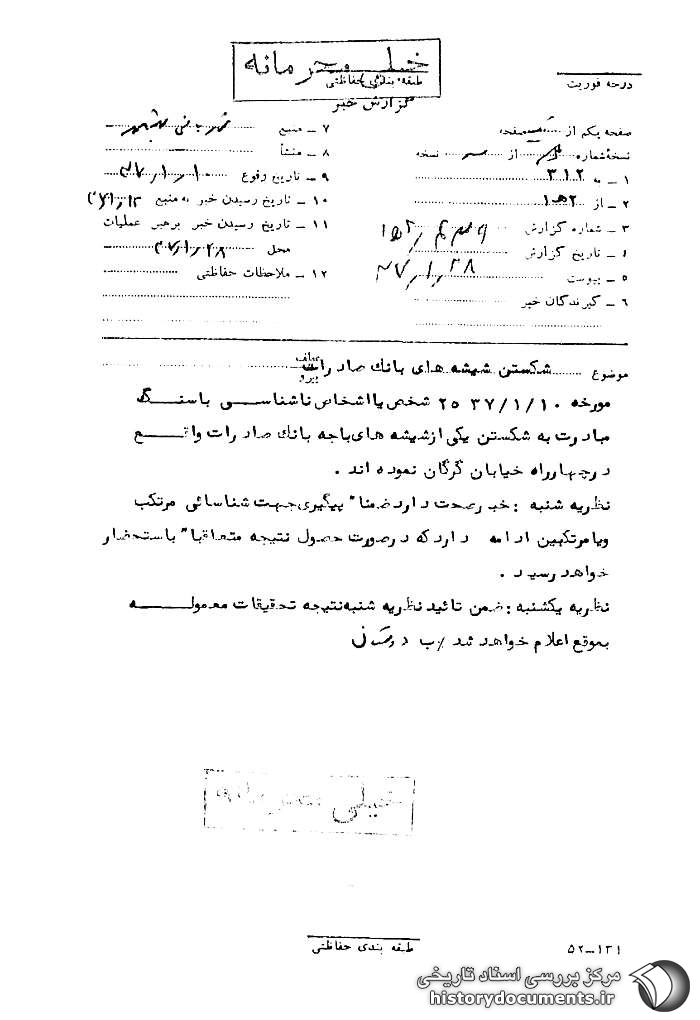 خیلی محرمانه
طبقه بندی حفاظتی
گزارش خبر
درجه فوریت
صفحه یکم از یک صفحه
نسخهٔ شماره از نسخه
۱ ـ به ۳۱۲
۲ ـ از ۲ه‍۱
۳ ـ شماره گزارش
٤ ـ تاریخ گزارش ۳۷٫۱٫۲۸
۵ ـ پیوست
٦ ـ گیرندگان خبر
۷ ـ منبع
۸ ـ منشأ
۹ ـ تاریخ وقوع ۳۷٫۱٫۱۰
۱۰ ـ تاریخ رسیدن خبر به منبع
۱۱ ـ تاریخ رسیدن خبر برهبر عملیات
محل ۳۷٫۱٫۲۸
۱۲ ـ ملاحظات حفاظتی
موضوع شکستن شیشه های بانک صادرات
مورخه ۲۵۳۷/۱/۱۰ شخص یا اشخاص ناشناسی با سنگ
مبادرت به شکستن یکی از شیشه های باجه بانک صادرات واقع
در چهارراه خیابان گرگان نموده اند .
نظریه شنبه : خبر صحت دارد ضمنا" پیگیری جهت شناسائی مرتکب
ویا مرتکبین ادامه دارد که در صورت حصول نتیجه متعاقبا" باستحضار
خواهد رسید .
نظریه یکشنبه : ضمن تائید نظریه شنبه نتیجه تحقیقات معموله
بموقع اعلام خواهد شد /ب
خیلی محرمانه
طبقه بندی حفاظتی
۱۳۱ـ۵۲
مرکز بررسی اسناد تاریخی
historydocuments.ir